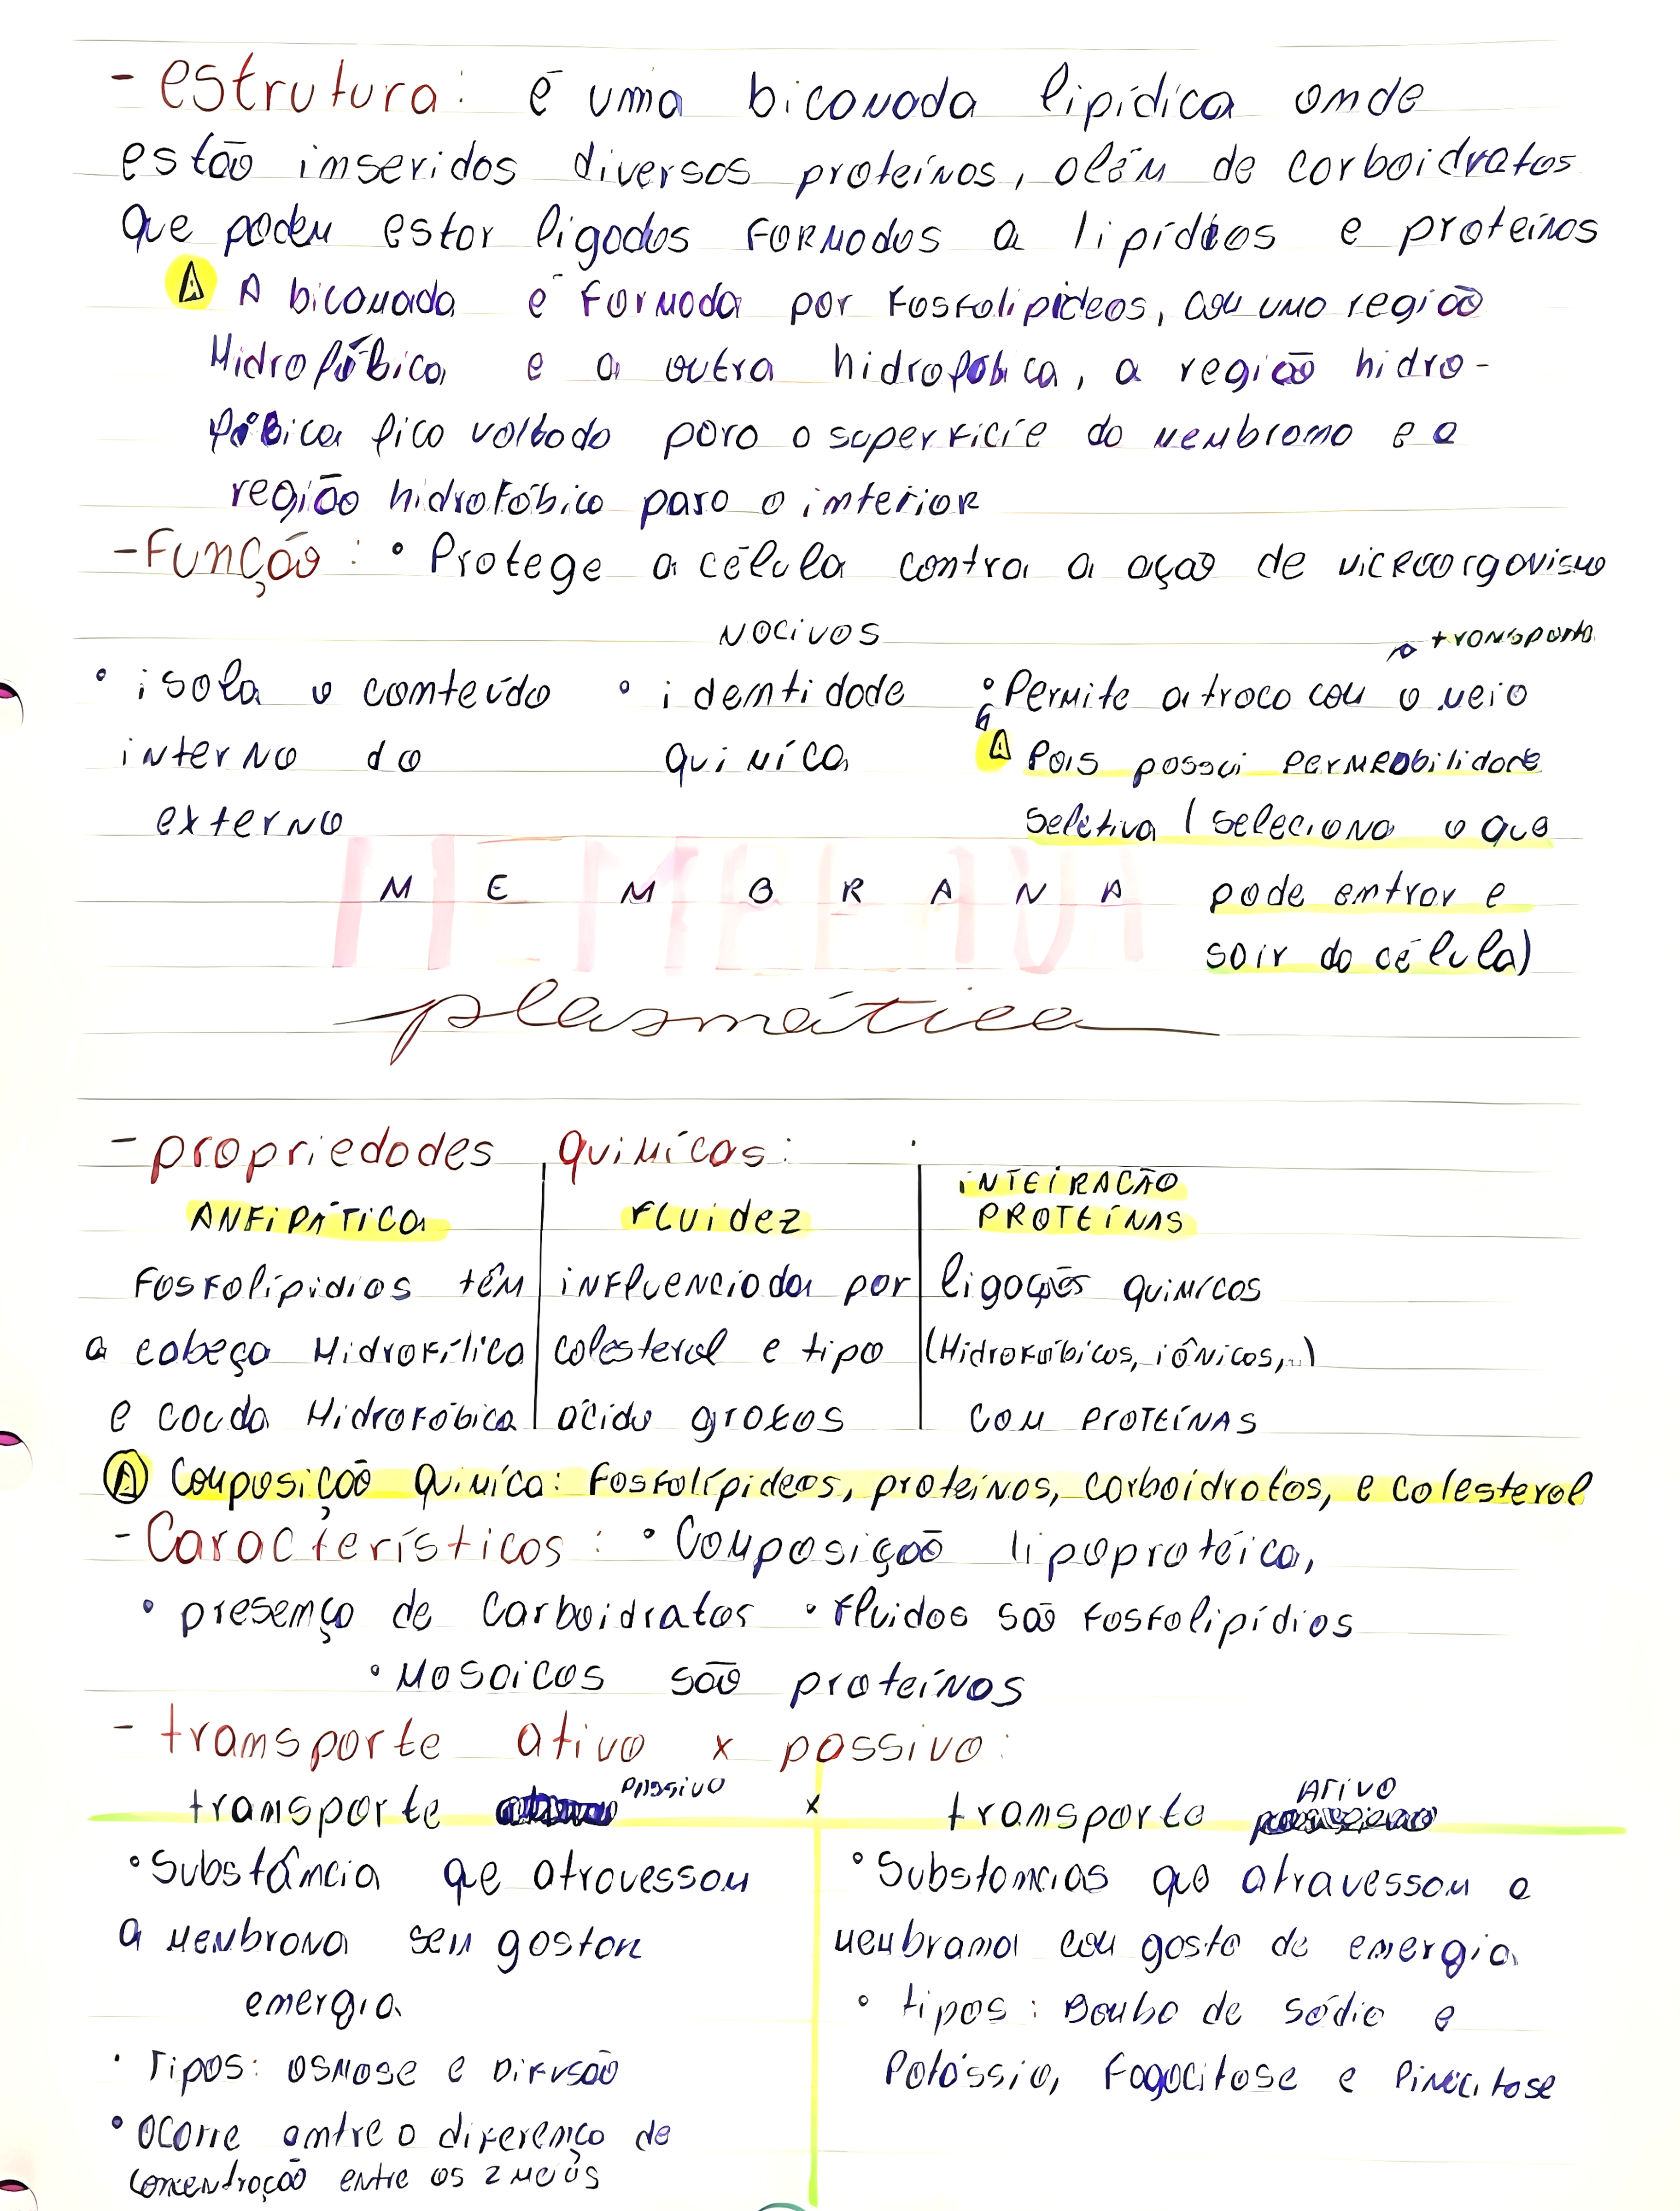 - estrutura: é uma bicamada lipídica onde
estão inseridos diversas proteínas, além de carboidratos
que podem estar ligados formados a lipídios e proteínas
A bicamada é formada por fosfolipídeos, com uma região
Hidrofóbica e a outra hidrofóbica, a região hidro-
fóbica fica voltada para a superfície da membrana e a
região hidrofóbica para o interior
- Função: • Protege a célula contra a ação de microorganismo
nocivos
transporte
• isola o conteúdo • identidade • Permite a troca com o meio
interno do química Pois possui permeabilidade
externo seletiva (seleciona o que
MEMBRANA pode entrar e
sair da célula)
plasmática
- propriedades químicas:
ANFIPÁTICA FLUIDEZ INTEIRACÃO
PROTEÍNAS
Fosfolípidios têm influenciada por ligações químicas
a cabeça Hidrofílica colesterol e tipo (Hidrofóbicas, iônicas,...)
e cauda Hidrofóbica ácido graxos com PROTEÍNAS
Composição Química: Fosfolípideos, proteínas, carboidratos, e colesterol
- Características: • Composição lipoprotéica,
• presença de carboidratos • Fluidos são fosfolipídios
• Mosaicos são proteínas
- transporte ativo x passivo:
transporte passivo x transporte ativo
• Substância qe atravessam • Substancias que atravessam a
a membrana sem gastar membrana com gasto de energia
energia • tipos: Bomba de sódio e
• Tipos: osmose e Difusão Potássio, Fagocitose e Pinocitose
• ocorre antre a diferença de
concentração entre os 2 meios